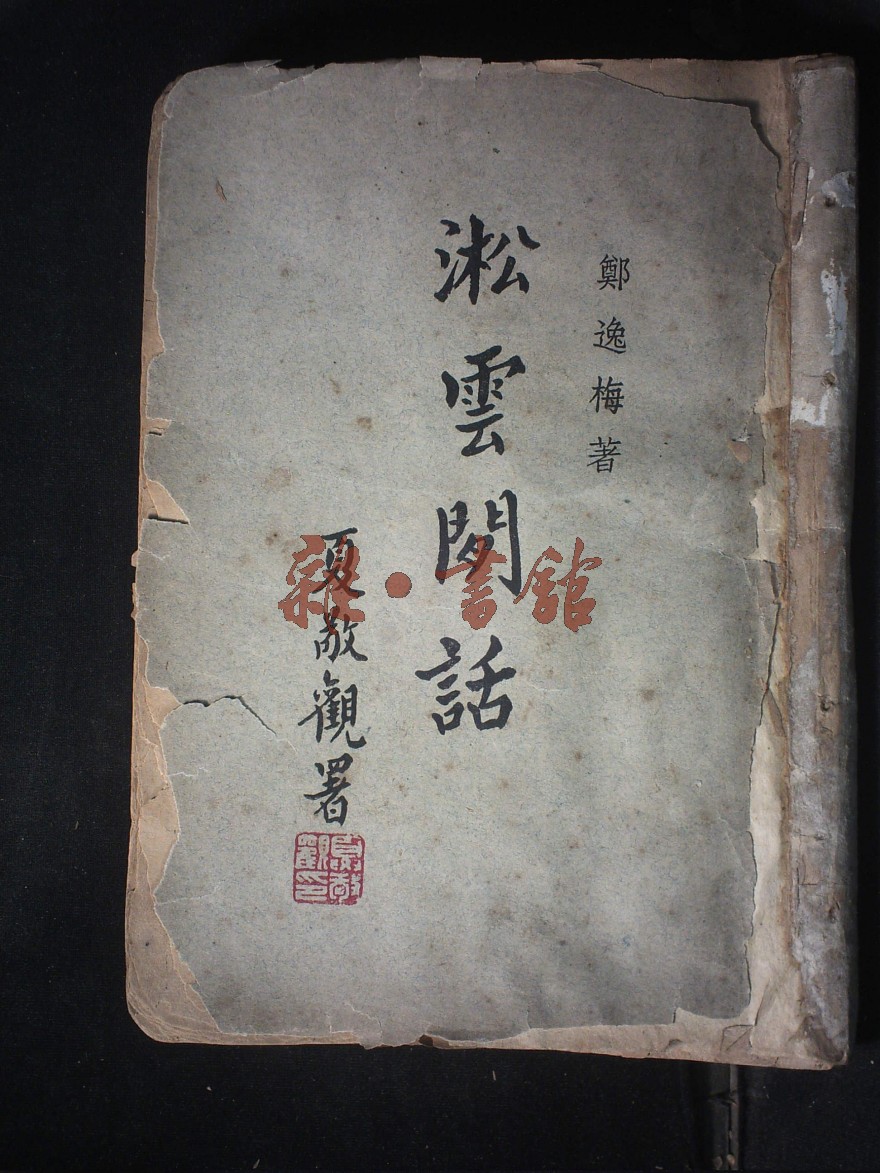 鄭逸梅著
淞雲閒話
夏敬觀署
夏敬觀印
雜·書館